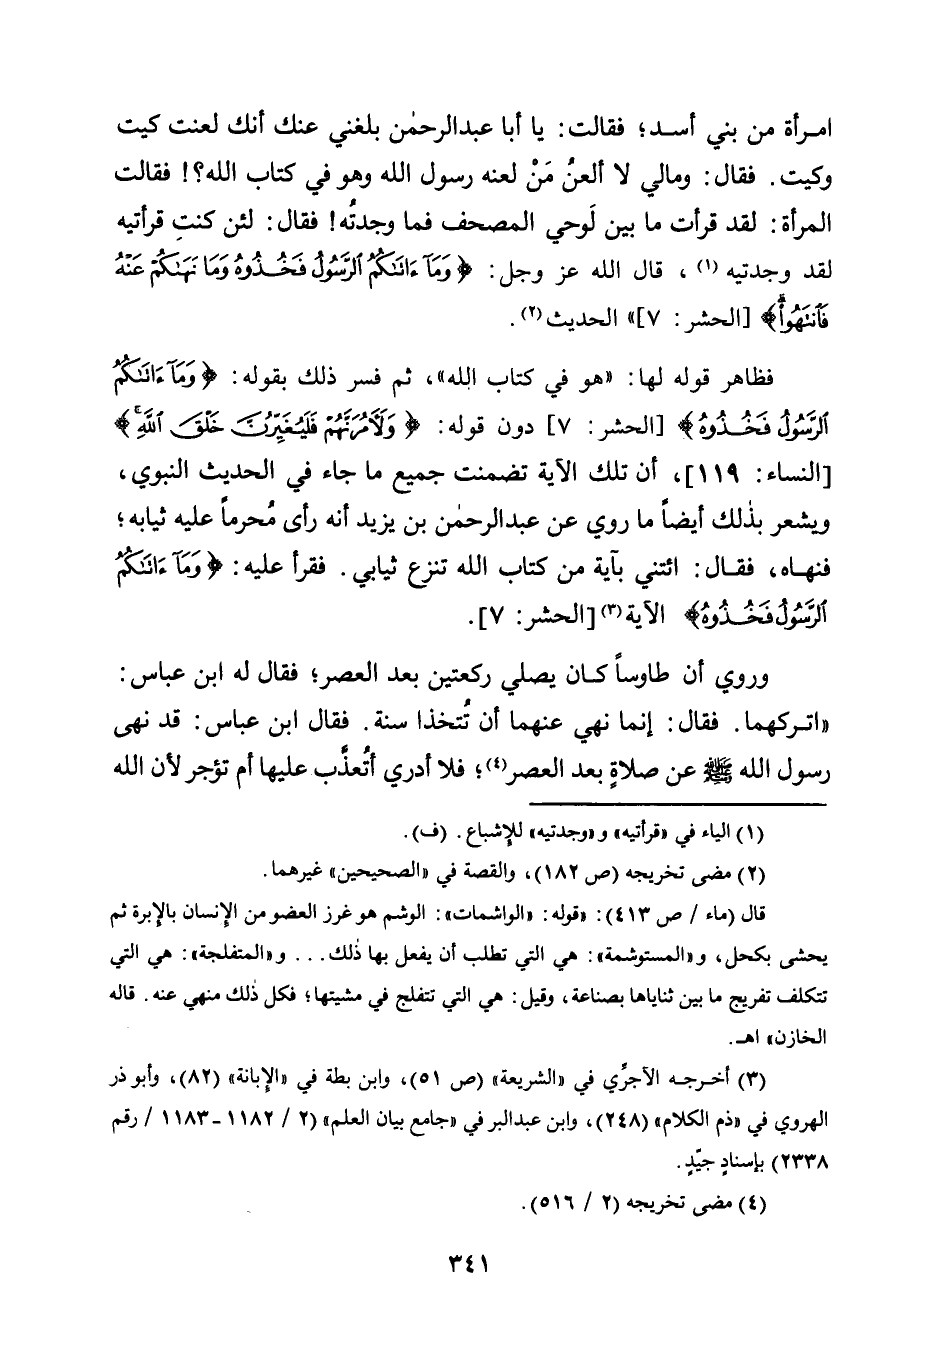 امـرأة من بني أسـد؛ فقالت: يا أبا عبدالرحمٰن بلغني عنك أنك لعنت كيت
وكيت. فقال: ومالي لا ألعنُ مَنْ لعنه رسول الله وهو في كتاب الله؟! فقالت
المرأة: لقد قرأت ما بين لَوحي المصحف فما وجدتُه! فقال: لئن كنتِ قرأتيه
لقد وجدتيه (١)، قال الله عز وجل: ﴿وَمَآ ءَاتَىٰكُمُ ٱلرَّسُولُ فَخُـذُوهُ وَمَا نَهَىٰكُمْ عَنْهُ
فَٱنتَهُوا۟ۚ﴾ [الحشر: ٧]» الحديث(٢).
فظاهر قوله لها: «هو في كتاب الله»، ثم فسر ذلك بقوله: ﴿وَمَآ ءَاتَىٰكُمُ
ٱلرَّسُولُ فَخُـذُوهُ﴾ [الحشر: ٧] دون قوله: ﴿وَلَآمُرَنَّهُمْ فَلَيُغَيِّرُنَّ خَلْقَ ٱللَّهِۚ﴾
[النساء: ١١٩]، أن تلك الآية تضمنت جميع ما جاء في الحديث النبوي،
ويشعر بذٰلك أيضاً ما روي عن عبدالرحمٰن بن يزيد أنه رأى مُحرماً عليه ثيابه؛
فنهـاه، فقـال: ائتني بآية من كتاب الله تنزع ثيابي. فقرأ عليه: ﴿وَمَآ ءَاتَىٰكُمُ
ٱلرَّسُولُ فَخُـذُوهُ﴾ الآية(٣) [الحشر: ٧].
وروي أن طاوساً كـان يصلي ركعتين بعد العصر؛ فقال له ابن عباس:
«اتـركهما. فقال: إنما نهي عنهما أن تُتخذا سنة. فقال ابن عباس: قد نهى
رسول الله ﷺ عن صلاةٍ بعد العصر(٤)؛ فلا أدري أتُعذَّب عليها أم تؤجر لأن الله
(١) الياء في «قرأتيه» و«وجدتيه» للإشباع. (ف).
(٢) مضى تخريجه (ص ١٨٢)، والقصة في «الصحيحين» غيرهما.
قال (ماء / ص ٤١٣): «قوله: «الواشمات»: الوشم هو غرز العضو من الإنسان بالإبرة ثم
يحشى بكحل، و«المستوشمة»: هي التي تطلب أن يفعل بها ذٰلك... و«المتفلجة»: هي التي
تتكلف تفريج ما بين ثناياها بصناعة، وقيل: هي التي تتفلج في مشيتها؛ فكل ذٰلك منهي عنه. قاله
الخازن» اهـ.
(٣) أخـرجـه الآجرِّي في «الشريعة» (ص ٥١)، وابن بطة في «الإبانة» (٨٢)، وأبو ذر
الهروي في «ذم الكلام» (٢٤٨)، وابن عبدالبر في «جامع بيان العلم» (٢ / ١١٨٢ - ١١٨٣ / رقم
٢٣٣٨) بإسنادٍ جيِّدٍ.
(٤) مضى تخريجه (٢ / ٥١٦).
٣٤١